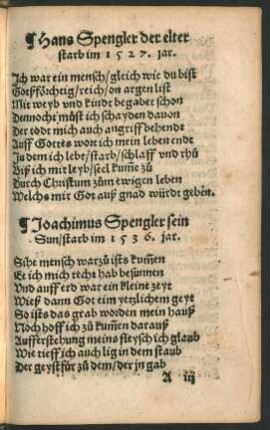 ¶ Hans Spengler der elter
starb im 1 5 2 7. jar.
Ich war ein mensch/gleich wie du bist
Gotßförchtig/reich/on argen list
Mit weyb vnd kindt begabet schon
Dennocht můst ich schayden dauon
Der todt mich auch angriff behendt
Auff Gottes wort ich mein leben endt
In dem ich lebe/starb/schlaff vnd rhů
Biß mir leyb/seel kumme zů
Durch Christum zům ewigen leben
Welchs mir Got auß gnad würdt geben.
¶ Joachimus Spengler sein
Sun/starb im 1 5 3 6. jar.
Sihe mensch warzů ists kum̃en
Ee ich mich recht hab besunnen
Vnd auff erd war ein kleine zeyt
Wieß dann Got eim yetzlichem geyt
So ists das grab worden mein hauß
Noch hoff ich zů kum̃en darauß
Aufferstehung meins fleysch ich glaub
Wie tieff ich auch lig in dem staub
Der geyst für zů dem/der jn gab
A iij